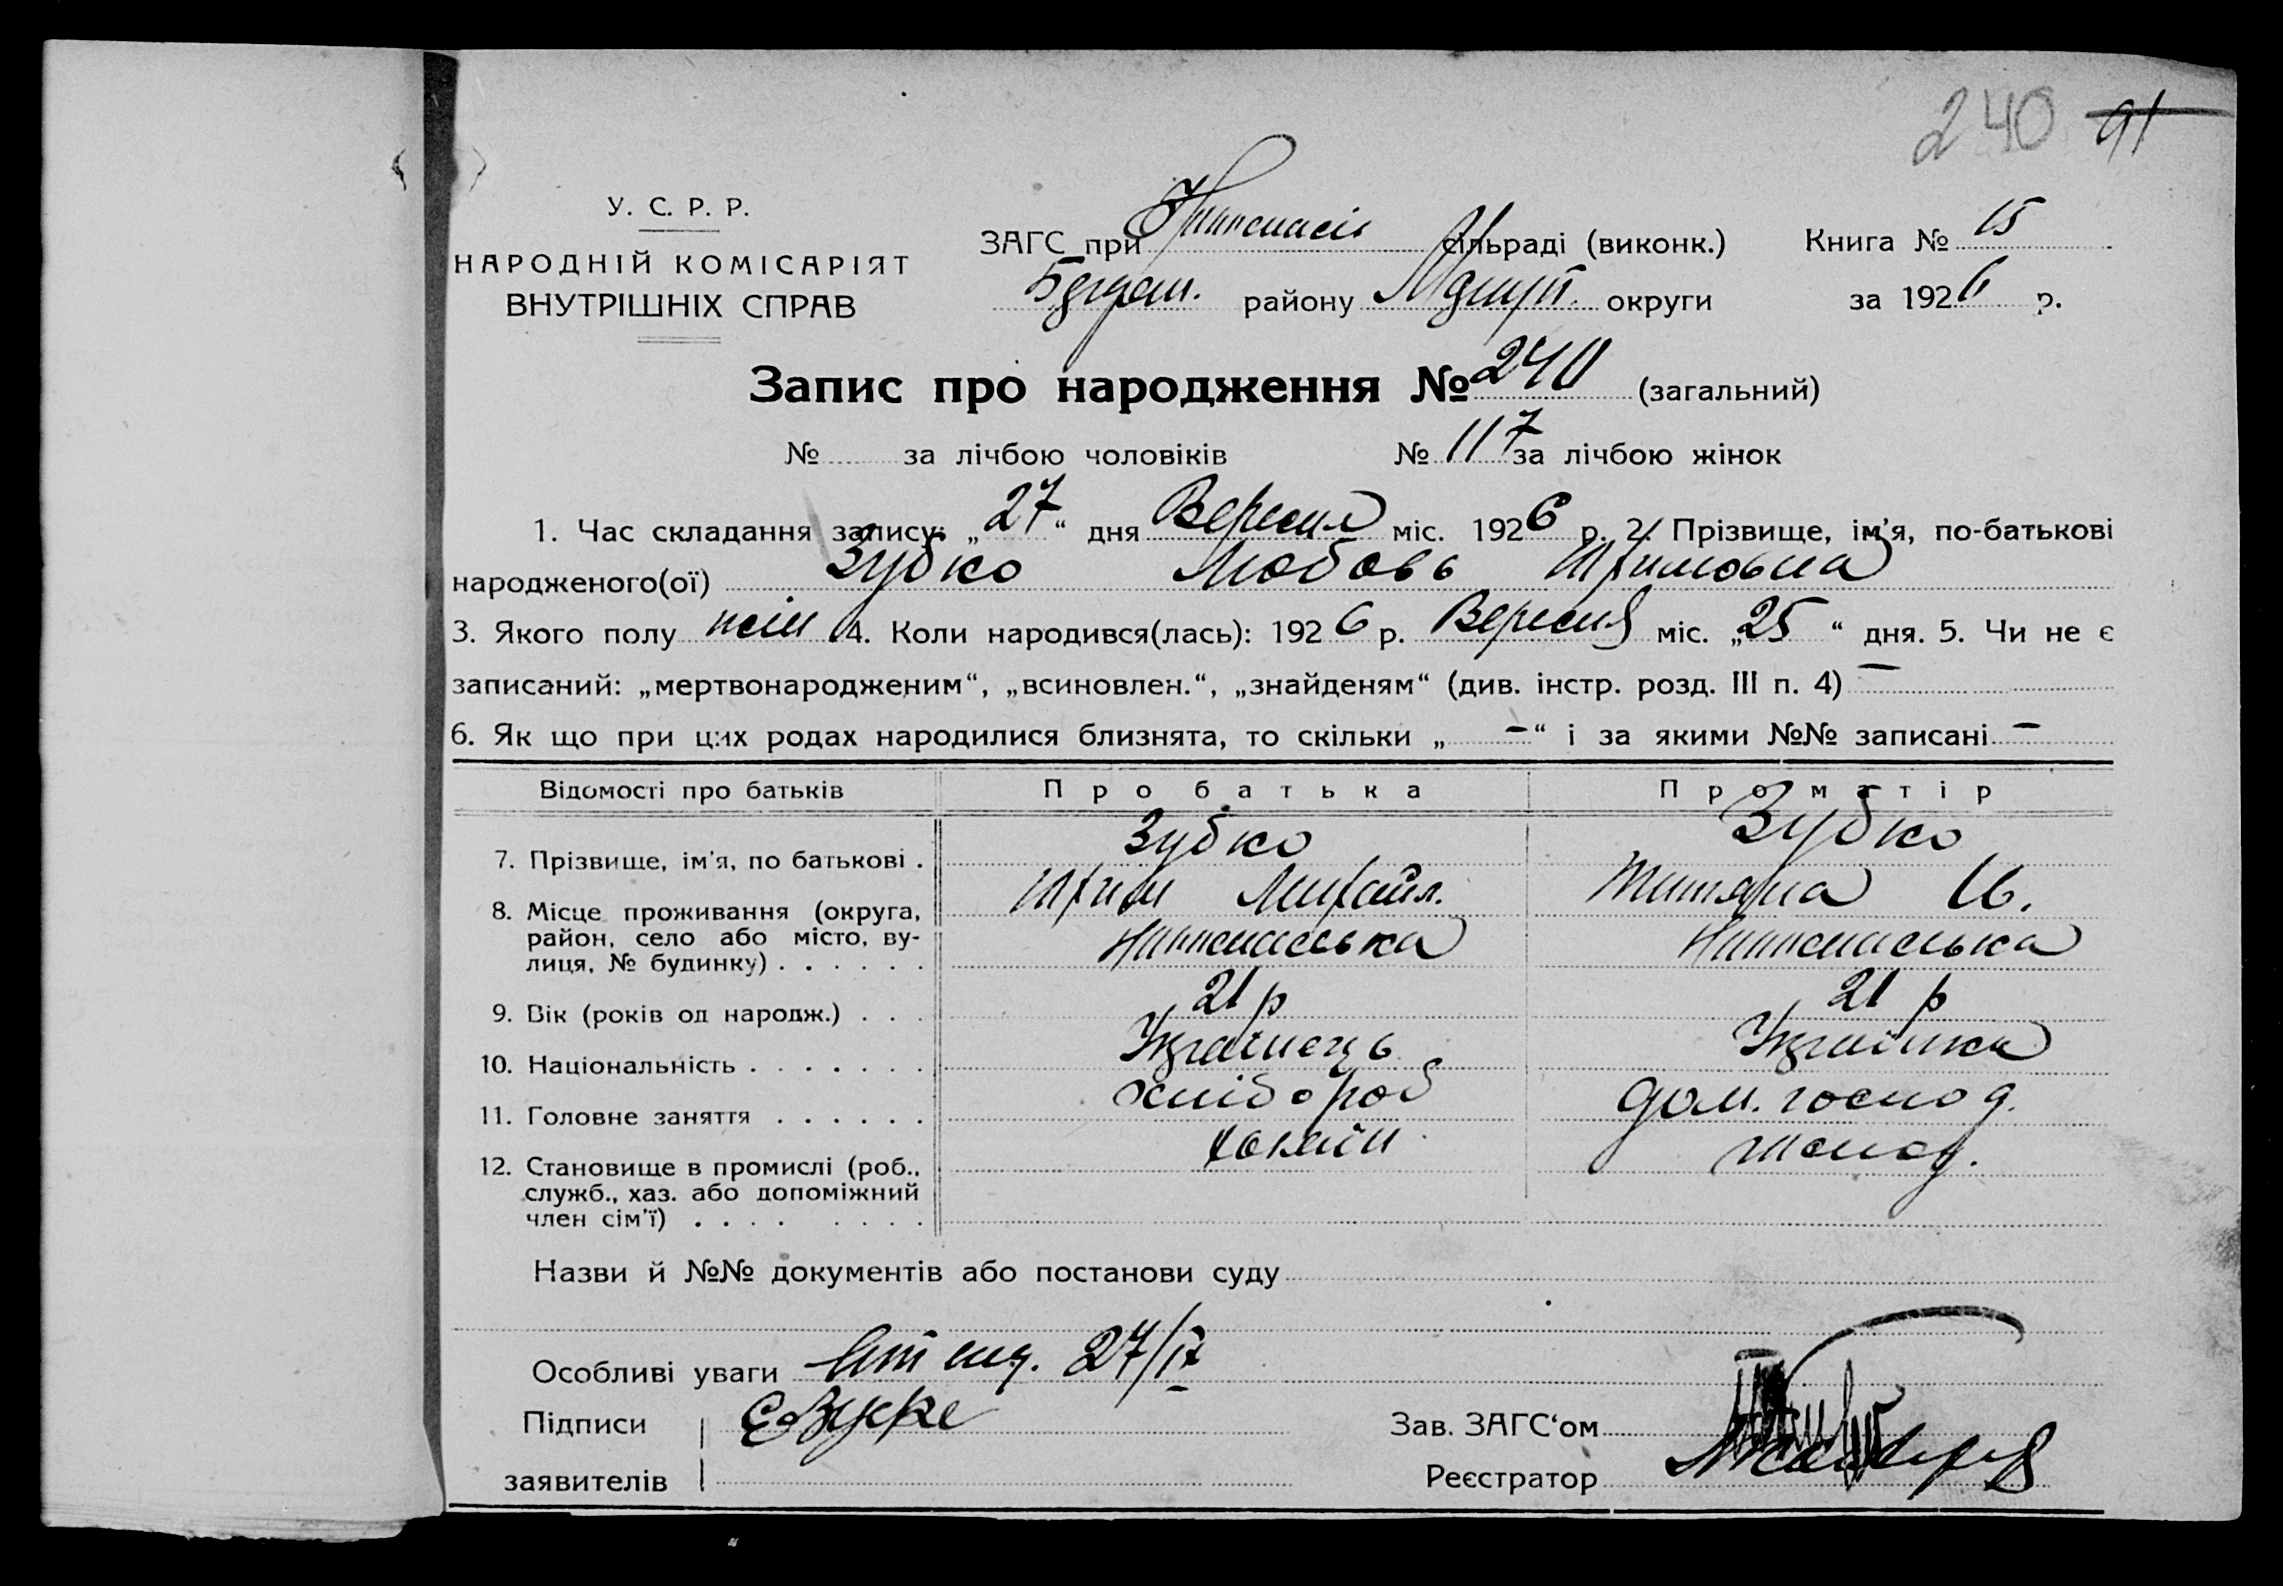 240 91
У. С. Р. Р.
НАРОДНІЙ КОМІСАРІЯТ
ВНУТРІШНІХ СПРАВ
ЗАГС при сільраді (виконк.) Книга № 15
району округи за 1926 р.
Запис про народження № 240 (загальний)
№ за лічбою чоловіків № 117 за лічбою жінок
1. Час складання запису: „27“ дня Вересня міс. 1926 р. 2. Прізвище, ім'я, по-батькові
народженого(ої) Зубко Любовь
3. Якого полу жін 4. Коли народився(лась): 1926 р. Вересня міс. „25“ дня. 5. Чи не є
записаний: „мертвонародженим“, „всиновлен.“, „знайденям“ (див. інстр. розд. III п. 4) —
6. Як що при цих родах народилися близнята, то скільки „ – “ і за якими №№ записані –
Відомості про батьків Про батька Про матір
7. Прізвище, ім'я, по батькові . Зубко Зубко
Михайл.
8. Місце проживання (округа,
район, село або місто, ву-
лиця, № будинку) . . . . . .
9. Вік (років од народж.) . . . 21 р 21 р
10. Національність . . . . . . . Українець Українка
11. Головне заняття . . . . . . хлібороб дом. господ.
12. Становище в промислі (роб.,
служб., хаз. або допоміжний
член сім'ї) . . . . . . . .
Назви й №№ документів або постанови суду
Особливі уваги 27/IX
Підписи Зав. ЗАГС‘ом
заявителів Реєстратор